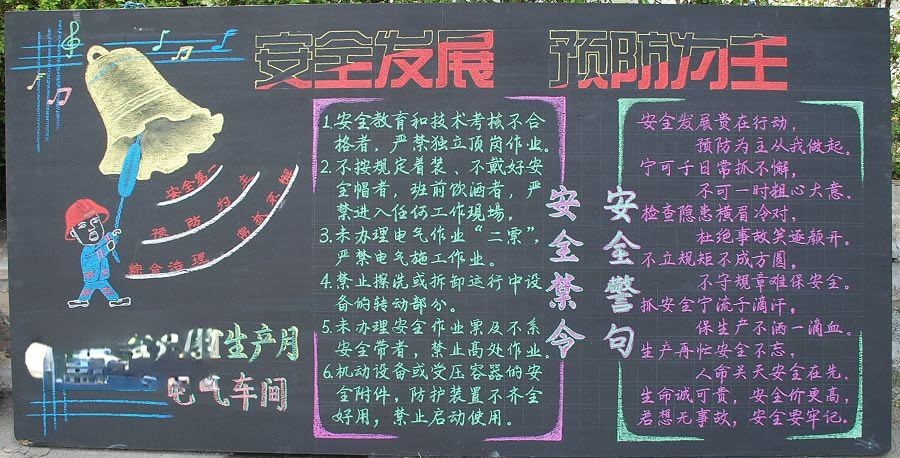 安全发展 预防为主
安全第一
预防为主
常抓不懈
综合治理
生产月
电气车间
1.安全教育和技术考核不合
格者，严禁独立顶岗作业。
2.不按规定着装、不戴好安
全帽者，班前饮酒者，严
禁进入任何工作现场。
3.未办理电气作业“二票”，
严禁电气施工作业。
4.禁止擦洗或拆卸运行中设
备的转动部分。
5.未办理安全作业票及不系
安全带者，禁止高处作业。
6.机动设备或受压容器的安
全附件，防护装置不齐全
好用，禁止启动使用。
安全禁令
安全警句
安全发展贵在行动，
预防为主从我做起。
宁可千日常抓不懈，
不可一时粗心大意。
检查隐患横眉冷对，
杜绝事故笑逐颜开。
不立规矩不成方圆，
不守规章难保安全。
抓安全宁流千滴汗，
保生产不洒一滴血。
生产再忙安全不忘，
人命关天安全在先。
生命诚可贵，安全价更高，
若想无事故，安全要牢记。